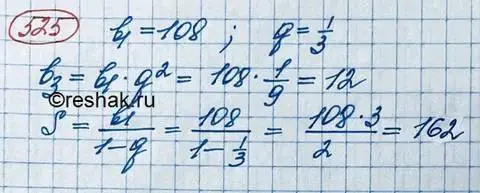 525 b₁ = 108 ; q = 1/3
b₃ = b₁ · q² = 108 · 1/9 = 12
©reshak.ru
S = b₁/(1-q) = 108/(1 - 1/3) = (108·3)/2 = 162